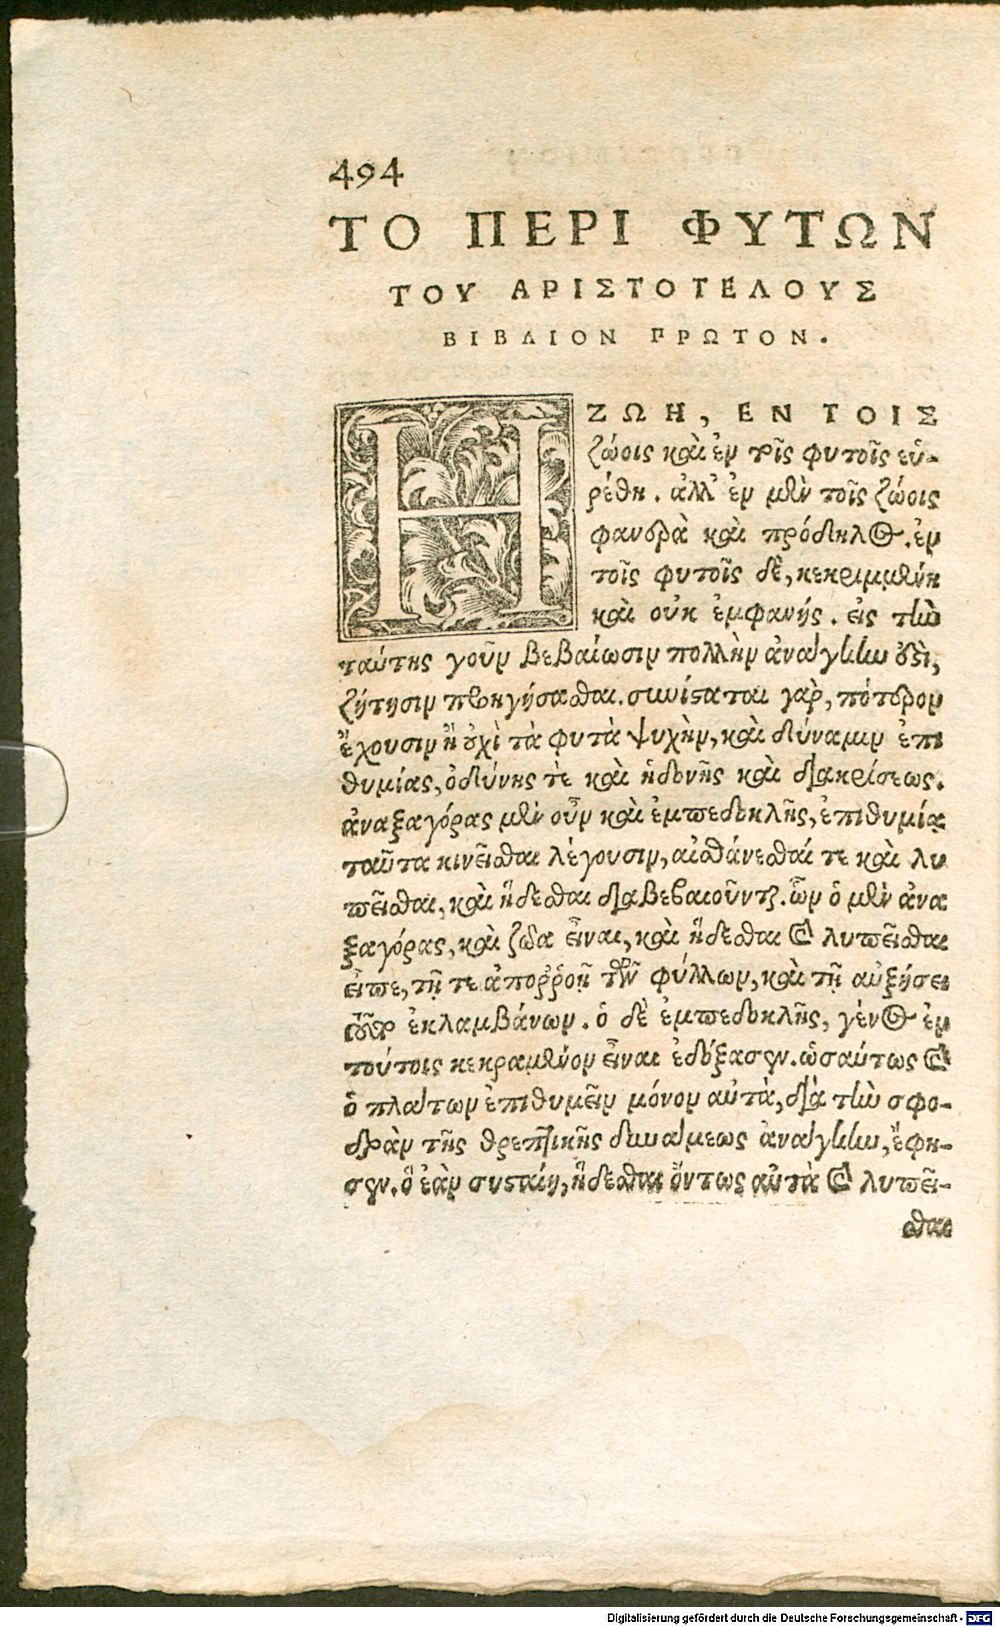 494
ΤΟ ΠΕΡΙ ΦΥΤΩΝ
ΤΟΥ ΑΡΙΣΤΟΤΕΛΟΥΣ
ΒΙΒΛΙΟΝ ΠΡΩΤΟΝ.
Η ΖΩΗ, ΕΝ ΤΟΙΣ
ζώοις καὶ ἐν τοῖς φυτοῖς εὑ-
ρέθη. ἀλλ' ἐν μὲν τοῖς ζώοις
φανερὰ καὶ πρόδηλος. ἐν
τοῖς φυτοῖς δὲ, κεκριμμένη
καὶ οὐκ ἐμφανής. εἰς τὴν
ταύτης γοῦν βεβαίωσιν πολλὴν ἀνάγκην ἐστὶ,
ζήτησιν προηγήσασθαι. συνίσταται γὰρ, πότερον
ἔχουσιν ἢ οὐχὶ τὰ φυτὰ ψυχὴν, καὶ δύναμιν ἐπι
θυμίας, ὀδύνης τὲ καὶ ἡδονῆς καὶ διακρίσεως.
ἀναξαγόρας μὲν οὖν καὶ ἐμπεδοκλῆς, ἐπιθυμίᾳ
ταῦτα κινεῖσθαι λέγουσιν, αἰσθάνεσθαί τε καὶ λυ
πεῖσθαι, καὶ ἥδεσθαι διαβεβαιοῦνται. ὧν ὁ μὲν ἀνα
ξαγόρας, καὶ ζῶα εἶναι, καὶ ἥδεσθαι καὶ λυπεῖσθαι
εἶπε, τῇ τε ἀποῤῥοῇ τῶν φύλλων, καὶ τῇ αὐξήσει
τοῦτο ἐκλαμβάνων. ὁ δὲ ἐμπεδοκλῆς, γένος ἐν
τούτοις κεκραμένον εἶναι ἐδόξασεν. ὡσαύτως καὶ
ὁ πλάτων ἐπιθυμεῖν μόνον αὐτὰ, διὰ τὴν σφο-
δρὰν τῆς θρεπτικῆς δυνάμεως ἀνάγκην, ἔφη-
σεν. ὃ ἐὰν συσταίη, ἥδεσθαι ὄντως αὐτὰ καὶ λυπεῖ-
σθαι
Digitalisierung gefördert durch die Deutsche Forschungsgemeinschaft - DFG